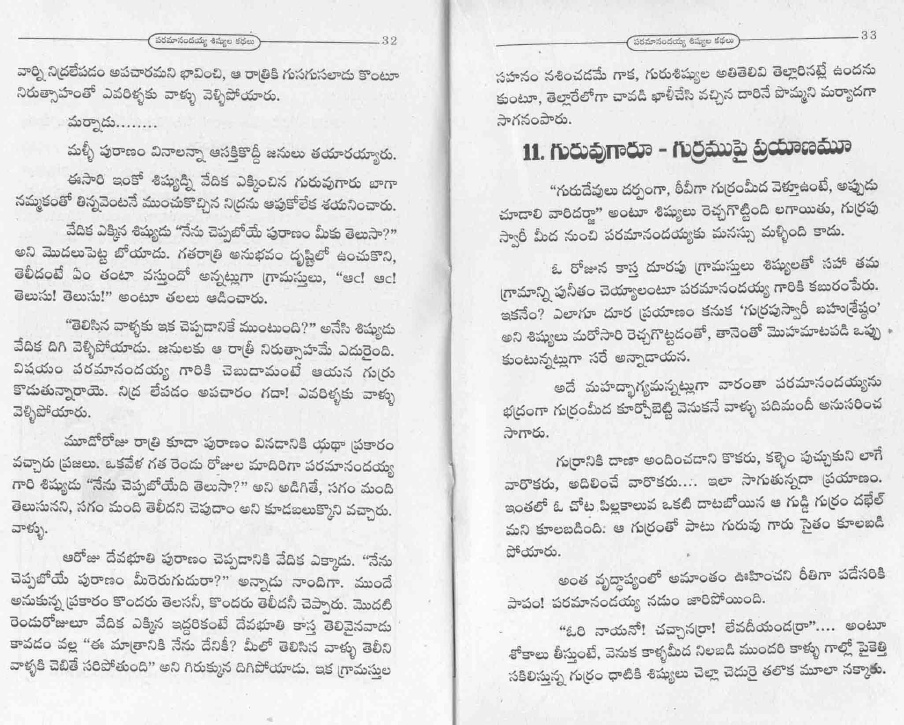 పరమానందయ్య శిష్యుల కథలు 32
వార్ని నిద్రలేపడం అపచారమని భావించి, ఆ రాత్రికి గుసగుసలాడు కొంటూ
నిరుత్సాహంతో ఎవరిళ్ళకు వాళ్ళు వెళ్ళిపోయారు.
మర్నాడు........
మళ్ళీ పురాణం వినాలన్నా ఆసక్తికొద్దీ జనులు తయారయ్యారు.
ఈసారి ఇంకో శిష్యుడ్ని వేదిక ఎక్కించిన గురువుగారు బాగా
నమ్మకంతో తిన్నవెంటనే ముంచుకొచ్చిన నిద్రను ఆపుకోలేక శయనించారు.
వేదిక ఎక్కిన శిష్యుడు "నేను చెప్పబోయే పురాణం మీకు తెలుసా?"
అని మొదలుపెట్ట బోయాడు. గతరాత్రి అనుభవం దృష్టిలో ఉంచుకొని,
తెలీదంటే ఏం తంటా వస్తుందో అన్నట్లుగా గ్రామస్తులు, "ఆఁ! ఆఁ!
తెలుసు! తెలుసు!" అంటూ తలలు ఆడించారు.
"తెలిసిన వాళ్ళకు ఇక చెప్పడానికే ముంటుంది?" అనేసి శిష్యుడు
వేదిక దిగి వెళ్ళిపోయాడు. జనులకు ఆ రాత్రీ నిరుత్సాహమే ఎదురైంది.
విషయం పరమానందయ్య గారికి చెబుదామంటే ఆయన గుర్రు
కొడుతున్నారాయె. నిద్ర లేపడం అపచారం గదా! ఎవరిళ్ళకు వాళ్ళు
వెళ్ళిపోయారు.
మూడోరోజు రాత్రి కూడా పురాణం వినడానికి యథా ప్రకారం
వచ్చారు ప్రజలు. ఒకవేళ గత రెండు రోజుల మాదిరిగా పరమానందయ్య
గారి శిష్యుడు "నేను చెప్పబోయేది తెలుసా?" అని అడిగితే, సగం మంది
తెలుసునని, సగం మంది తెలీదని చెపుదాం అని కూడబలుక్కొని వచ్చారు.
వాళ్ళు.
ఆరోజు దేవభూతి పురాణం చెప్పడానికి వేదిక ఎక్కాడు. "నేను
చెప్పబోయే పురాణం మీరెరుగుదురా?" అన్నాడు నాందిగా. ముందే
అనుకున్న ప్రకారం కొందరు తెలసనీ, కొందరు తెలీదనీ చెప్పారు. మొదటి
రెండురోజులూ వేదిక ఎక్కిన ఇద్దరికంటే దేవభూతి కాస్త తెలివైనవాడు
కావడం వల్ల "ఈ మాత్రానికి నేను దేనికీ? మీలో తెలిసిన వాళ్ళు తెలీని
వాళ్ళకి చెబితే సరిపోతుంది" అని గిరుక్కున దిగిపోయాడు. ఇక గ్రామస్తుల
పరమానందయ్య శిష్యుల కథలు 33
సహనం నశించడమే గాక, గురుశిష్యుల అతితెలివి తెల్లారినట్లే ఉందను
కుంటూ, తెల్లారేలోగా చావడి ఖాళీచేసి వచ్చిన దారినే పొమ్మని మర్యాదగా
సాగనంపారు.
11. గురువుగారూ - గుర్రముపై ప్రయాణమూ
"గురుదేవులు దర్పంగా, ఠీవీగా గుర్రంమీద వెళ్తూఉంటే, అప్పుడు
చూడాలి వారిదర్జా" అంటూ శిష్యులు రెచ్చగొట్టింది లగాయితు, గుర్రపు
స్వారీ మీద నుంచి పరమానందయ్యకు మనస్సు మళ్ళింది కాదు.
ఓ రోజున కాస్త దూరపు గ్రామస్తులు శిష్యులతో సహా తమ
గ్రామాన్ని పునీతం చెయ్యాలంటూ పరమానందయ్య గారికి కబురంపేరు.
ఇకనేం? ఎలాగూ దూర ప్రయాణం కనుక 'గుర్రపుస్వారీ బహుశ్రేష్టం'
అని శిష్యులు మరోసారి రెచ్చగొట్టడంతో, తానెంతో మొహమాటపడి ఒప్పు
కుంటున్నట్లుగా సరే అన్నాడాయన.
అదే మహద్భాగ్యమన్నట్లుగా వారంతా పరమానందయ్యను
భద్రంగా గుర్రంమీద కూర్చోబెట్టి వెనుకనే వాళ్ళు పదిమందీ అనుసరించ
సాగారు.
గుర్రానికి దాణా అందించడాని కొకరు, కళ్ళెం పుచ్చుకుని లాగే
వారొకరు, అదిలించే వారొకరు.... ఇలా సాగుతున్నదా ప్రయాణం.
ఇంతలో ఓ చోట పిల్లకాలువ ఒకటి దాటబోయిన ఆ గుడ్డి గుర్రం దభేల్
మని కూలబడింది. ఆ గుర్రంతో పాటు గురువు గారు సైతం కూలబడి
పోయారు.
అంత వృద్ధాప్యంలో అమాంతం ఊహించని రీతిగా పడేసరికి
పాపం! పరమానందయ్య నడుం జారిపోయింది.
"ఓరి నాయనో! చచ్చానర్రా! లేవదీయండర్రా".... అంటూ
శోకాలు తీస్తుంటే, వెనుక కాళ్ళమీద నిలబడి ముందరి కాళ్ళు గాల్లో పైకెత్తి
సకిలిస్తున్న గుర్రం ధాటికి శిష్యులు చెల్లా చెదురై తలోక మూలా నక్కారు.